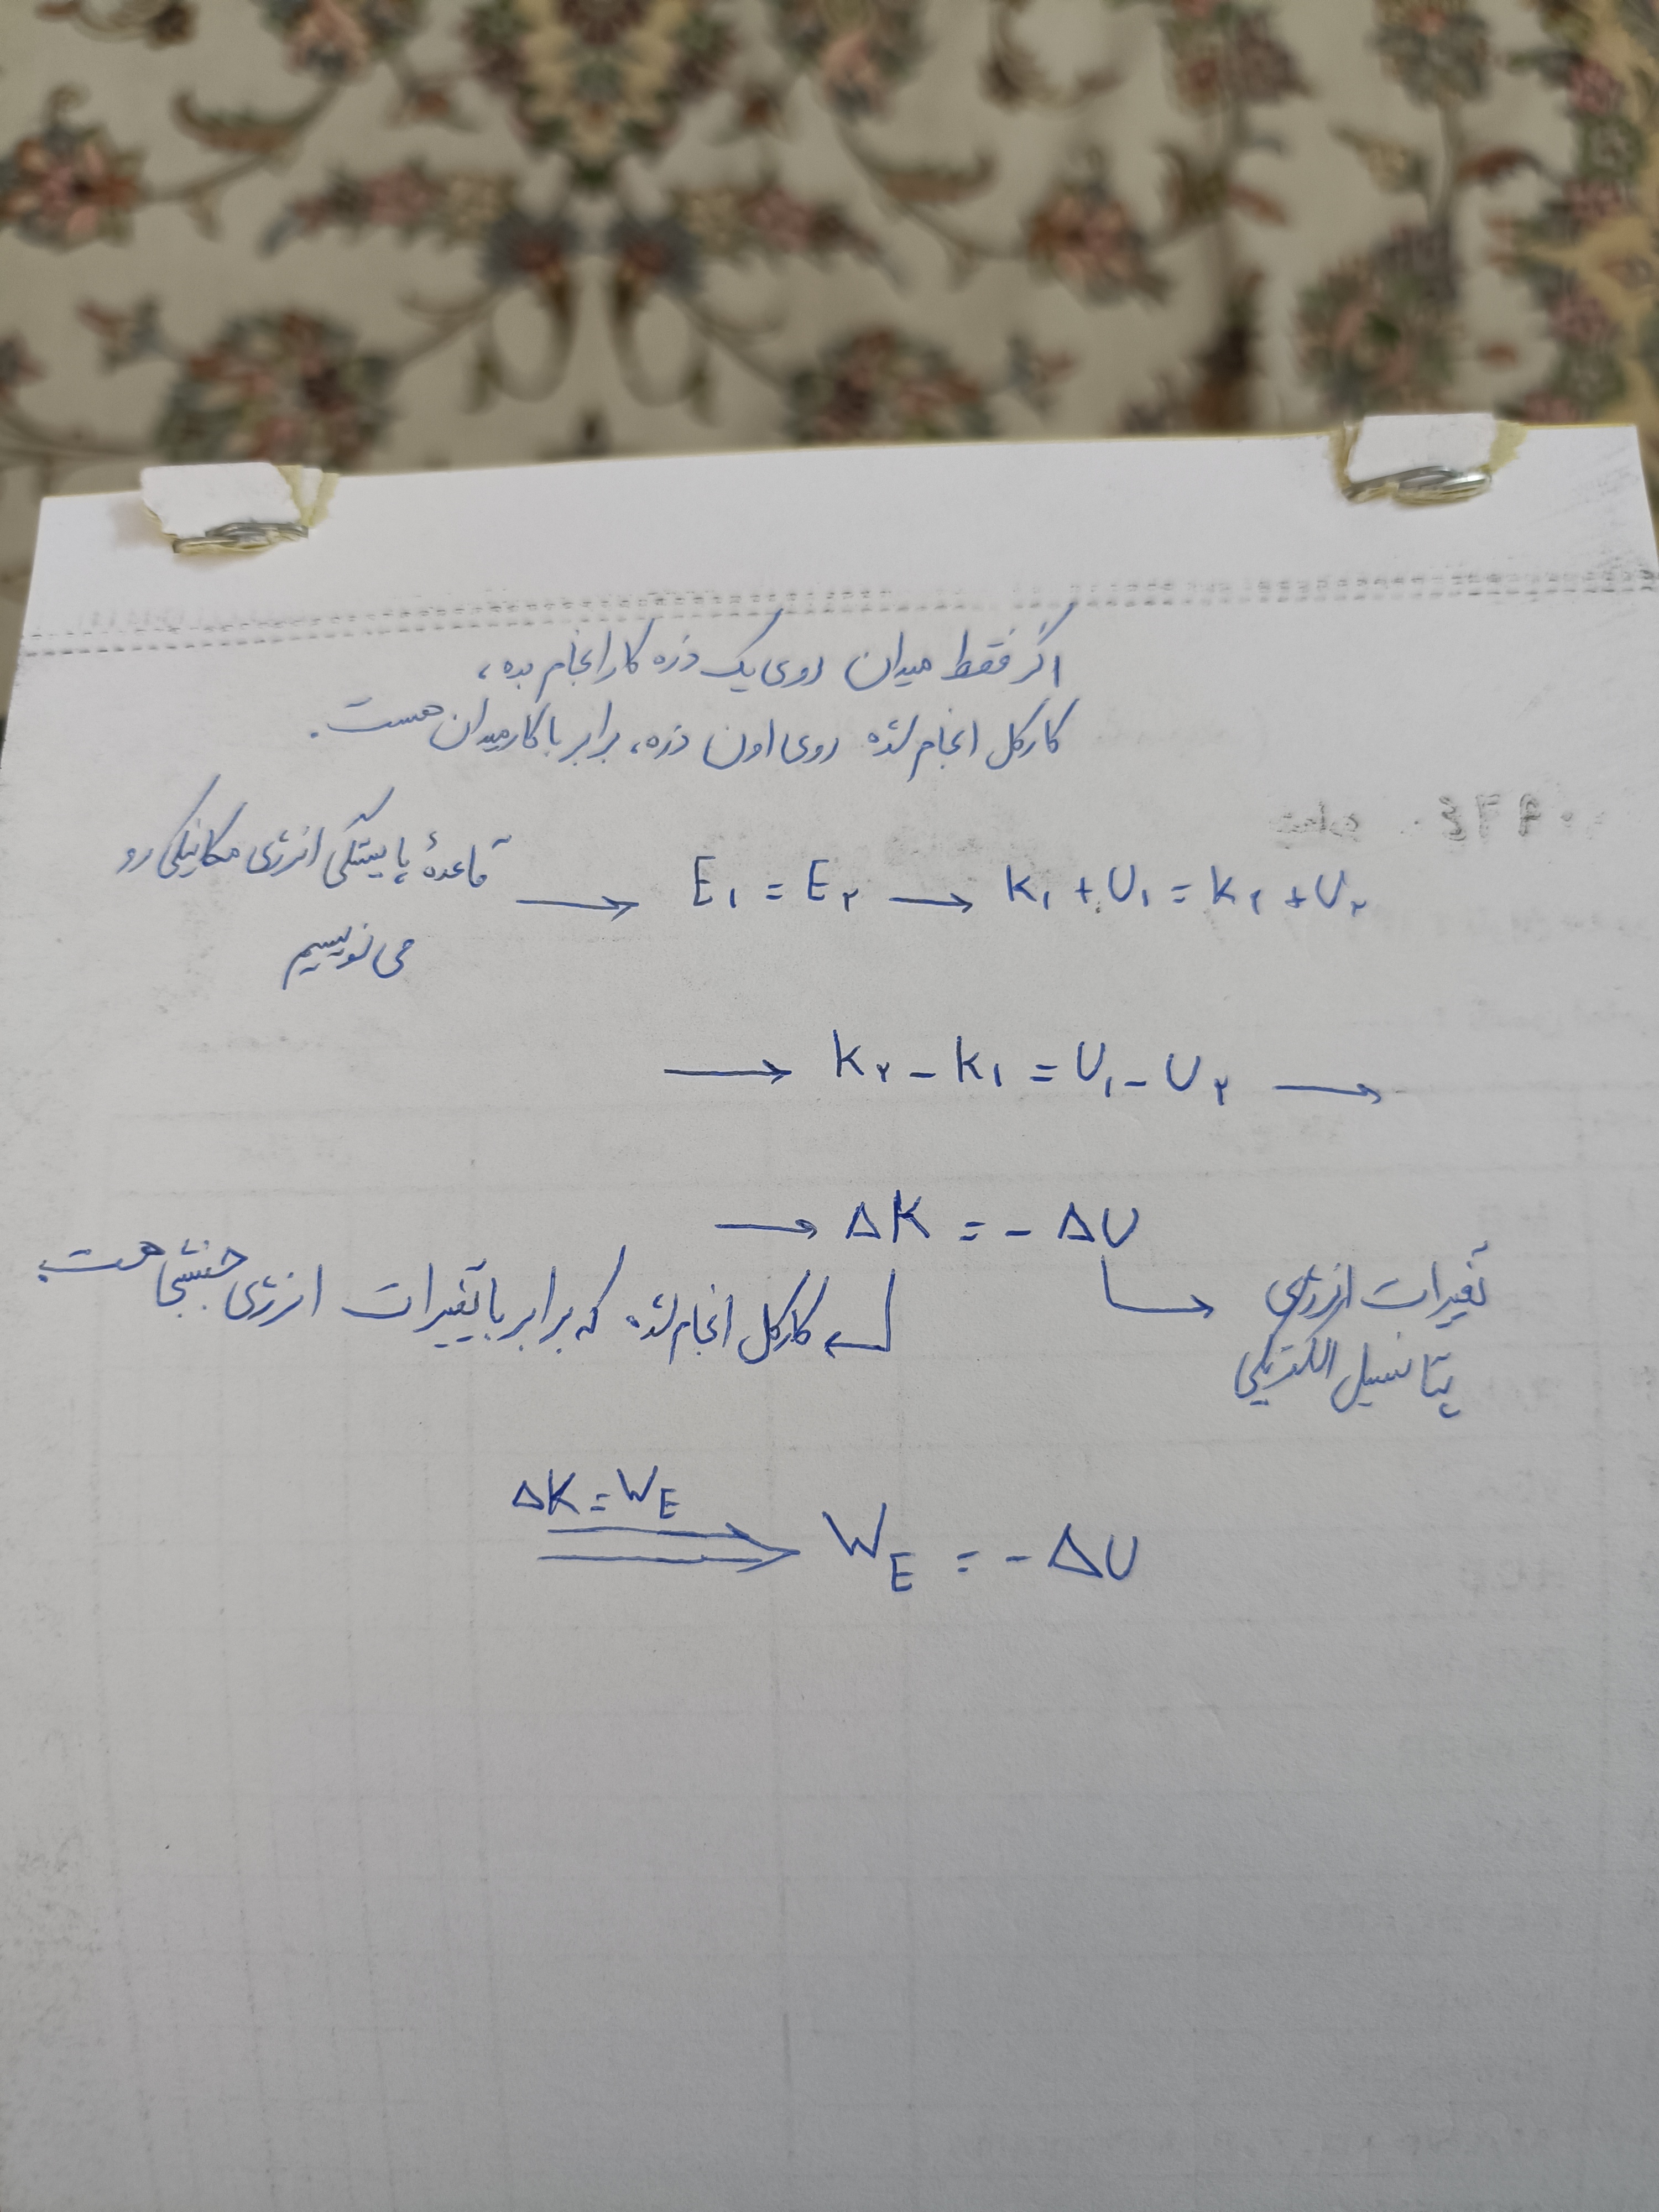 اگر فقط میدان روی یک ذره کار انجام بده،
کار کل انجام شده روی اون ذره، برابر با کار میدان هست.
قاعدهٔ پایستگی انرژی مکانیکی رو
می نویسیم
→ E₁ = E₂ → K₁ + U₁ = K₂ + U₂
→ K₂ - K₁ = U₁ - U₂ →
→ ΔK = - ΔU
کار کل انجام شده که برابر با تغییرات انرژی جنبشی هست.
تغییرات انرژی
پتانسیل الکتریکی
ΔK = W_E
⇒ W_E = - ΔU